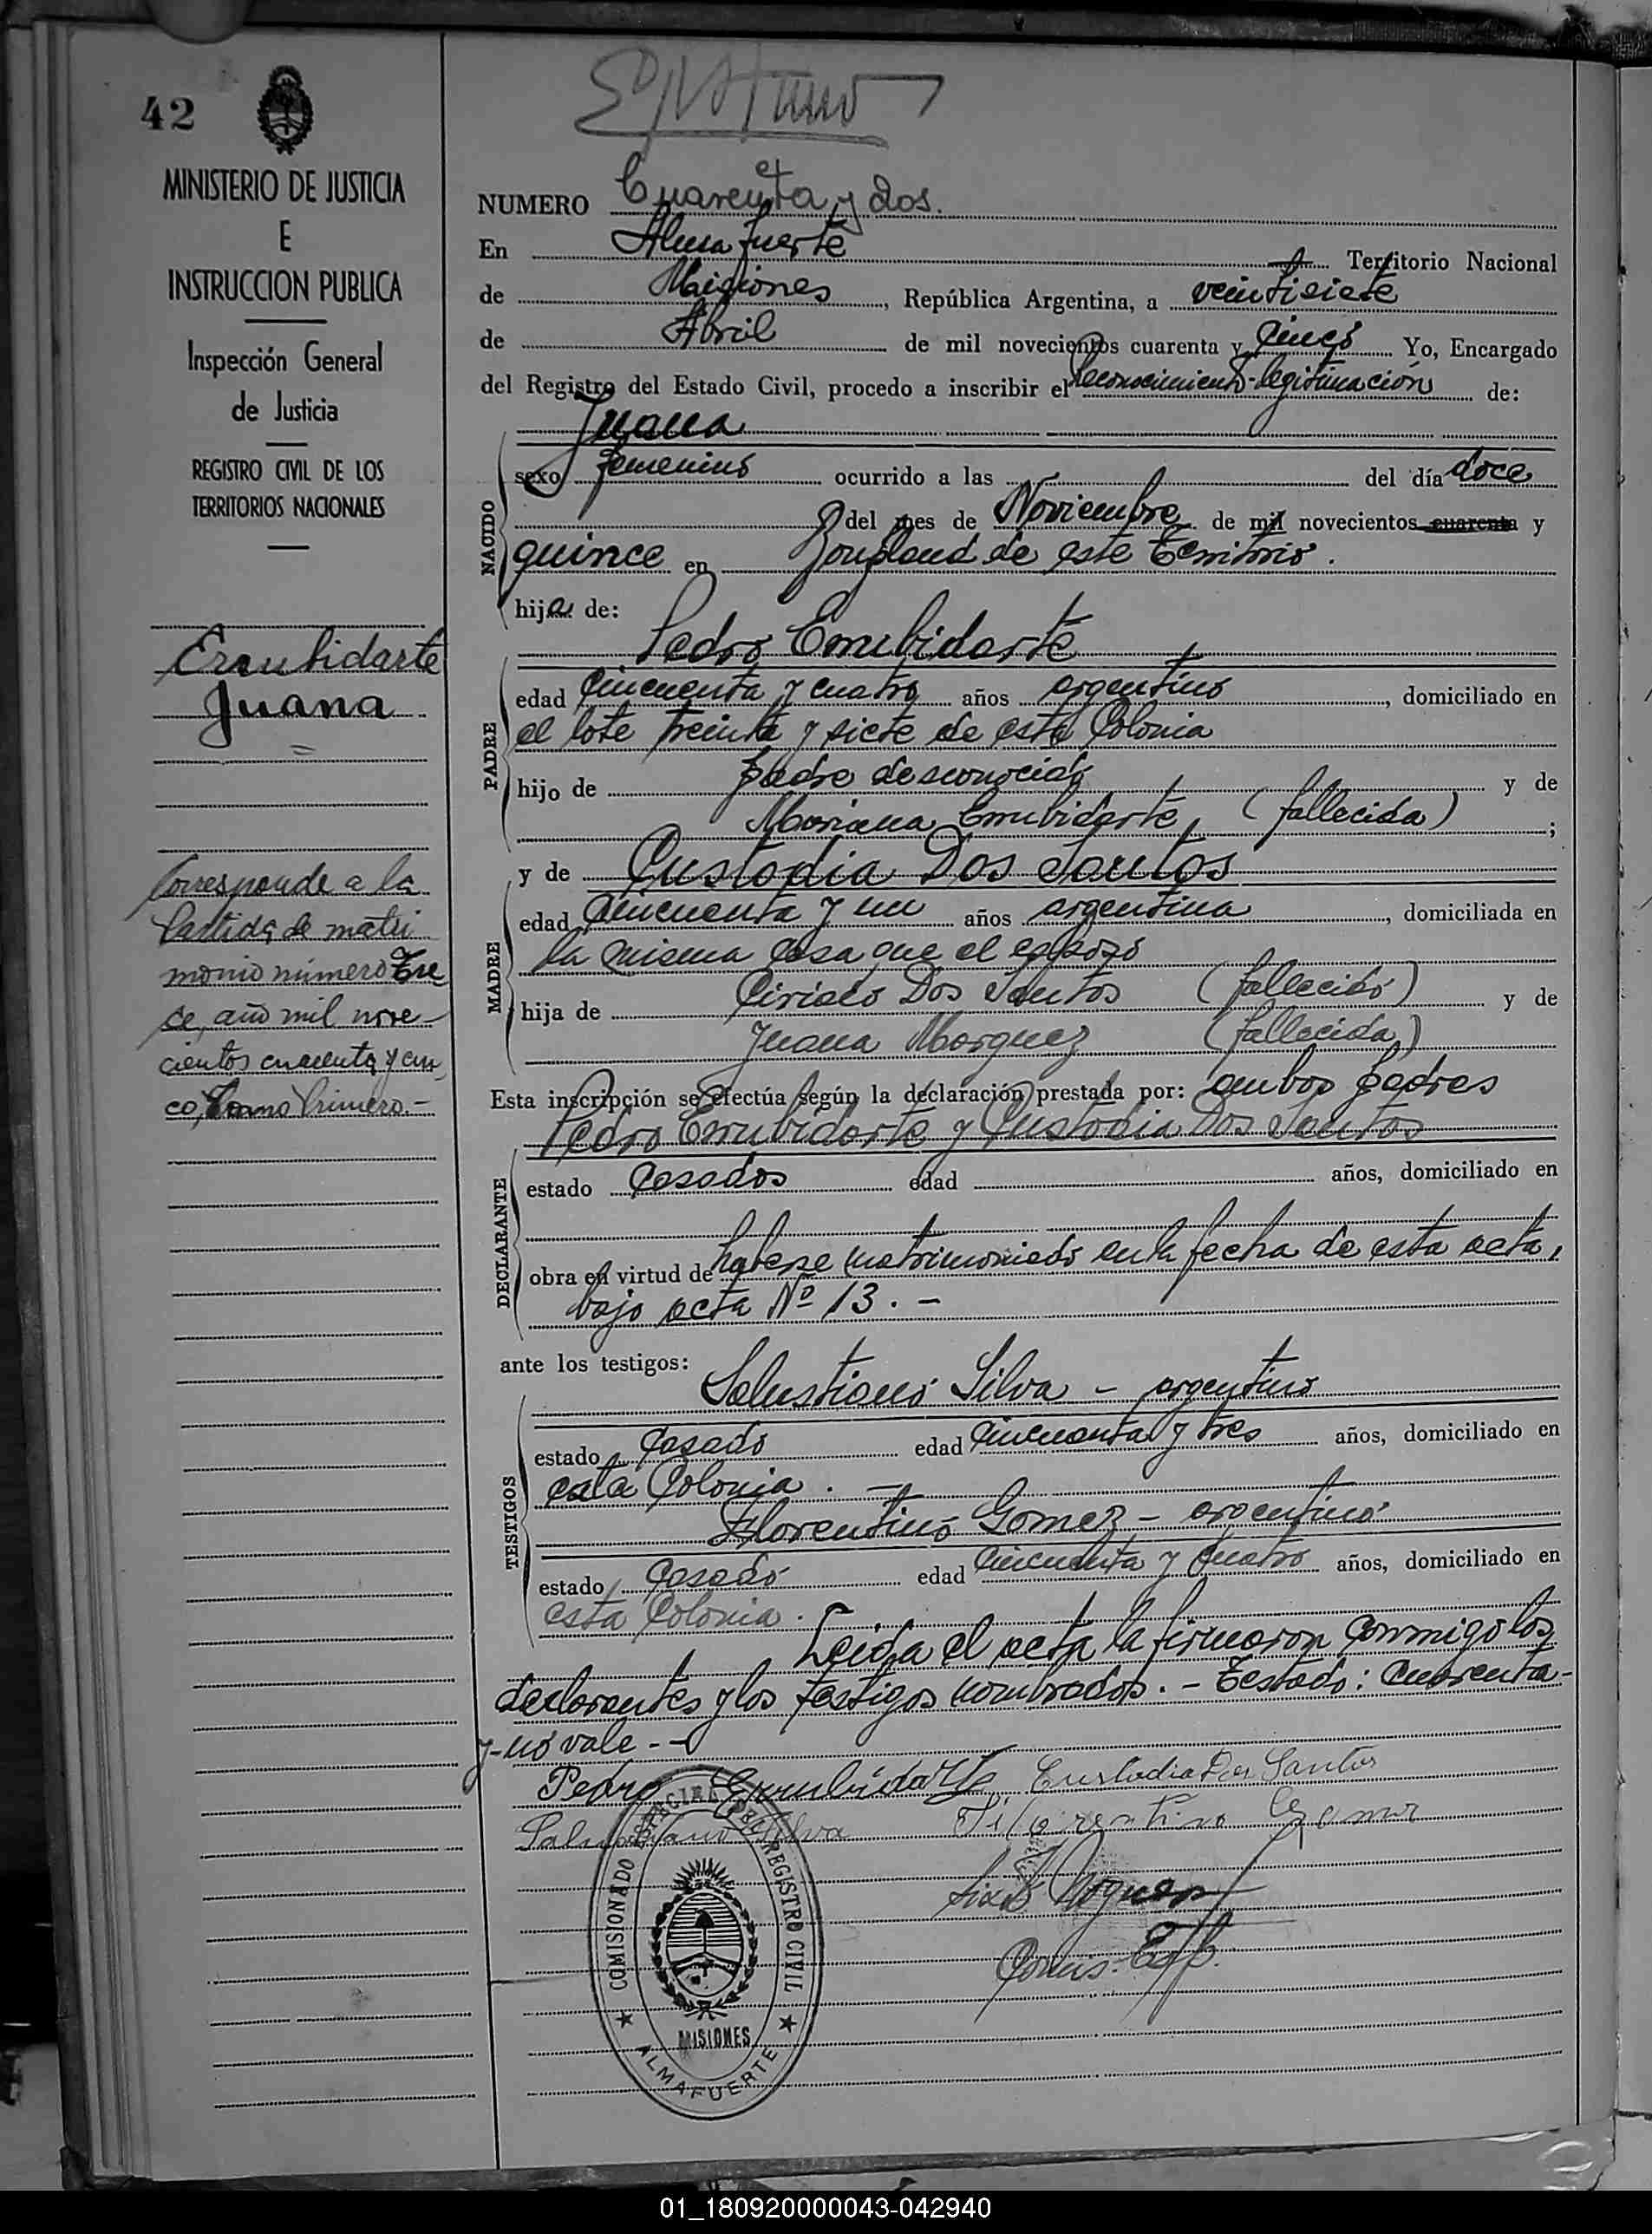 42
MINISTERIO DE JUSTICIA
E
INSTRUCCION PUBLICA
Inspección General
de Justicia
REGISTRO CIVIL DE LOS
TERRITORIOS NACIONALES
Errubidarte
Juana
Corresponde a la
Partida de matri
monio número Tre
ce, año mil nove-
cientos cuarenta y cin
co, Tomo Primero.-
NUMERO Cuarenta y dos.
En Almafuerte Territorio Nacional
de Misiones, República Argentina, a veintisiete
de Abril de mil novecientos cuarenta y cinco Yo, Encargado
del Registro del Estado Civil, procedo a inscribir el Reconocimiento-legitimación de:
Juana
NACIDO
sexo femenino ocurrido a las del día doce
del mes de Noviembre de mil novecientos cuarenta y
quince en Bonpland de este Territorio.
hija de:
Pedro Errubidarte
PADRE
edad cincuenta y cuatro años argentino, domiciliado en
el lote treinta y siete de esta Colonia
hijo de padre desconocido y de
Mariana Errubidarte, (fallecida);
y de Custodia Dos Santos
MADRE
edad cincuenta y un años argentina, domiciliada en
la misma casa que el esposo
hija de Ciriaco Dos Santos (fallecido) y de
Juana Marquez (fallecida)
Esta inscripción se efectúa según la declaración prestada por: ambos padres
Pedro Errubidarte y Custodia Dos Santos
DECLARANTE
estado casados edad años, domiciliado en
obra en virtud de haberse matrimoniado en la fecha de esta acta,
bajo acta Nº 13.-
ante los testigos:
Salustiano Silva - argentino
TESTIGOS
estado casado edad cincuenta y tres años, domiciliado en
esta Colonia.-
Florentino Gomez - argentino
estado casado edad cincuenta y cuatro años, domiciliado en
esta Colonia.
Leida el acta la firmaron conmigo los
declarantes y los testigos nombrados.- Testado: cuarenta-
y-no vale.-
Pedro Errubidarte Custodia Dos Santos
Salustiano Silva Florentino Gomez
Comis. Esp.
COMISIONADO ESPECIAL DEL REGISTRO CIVIL
MISIONES
ALMAFUERTE
01_180920000043-042940